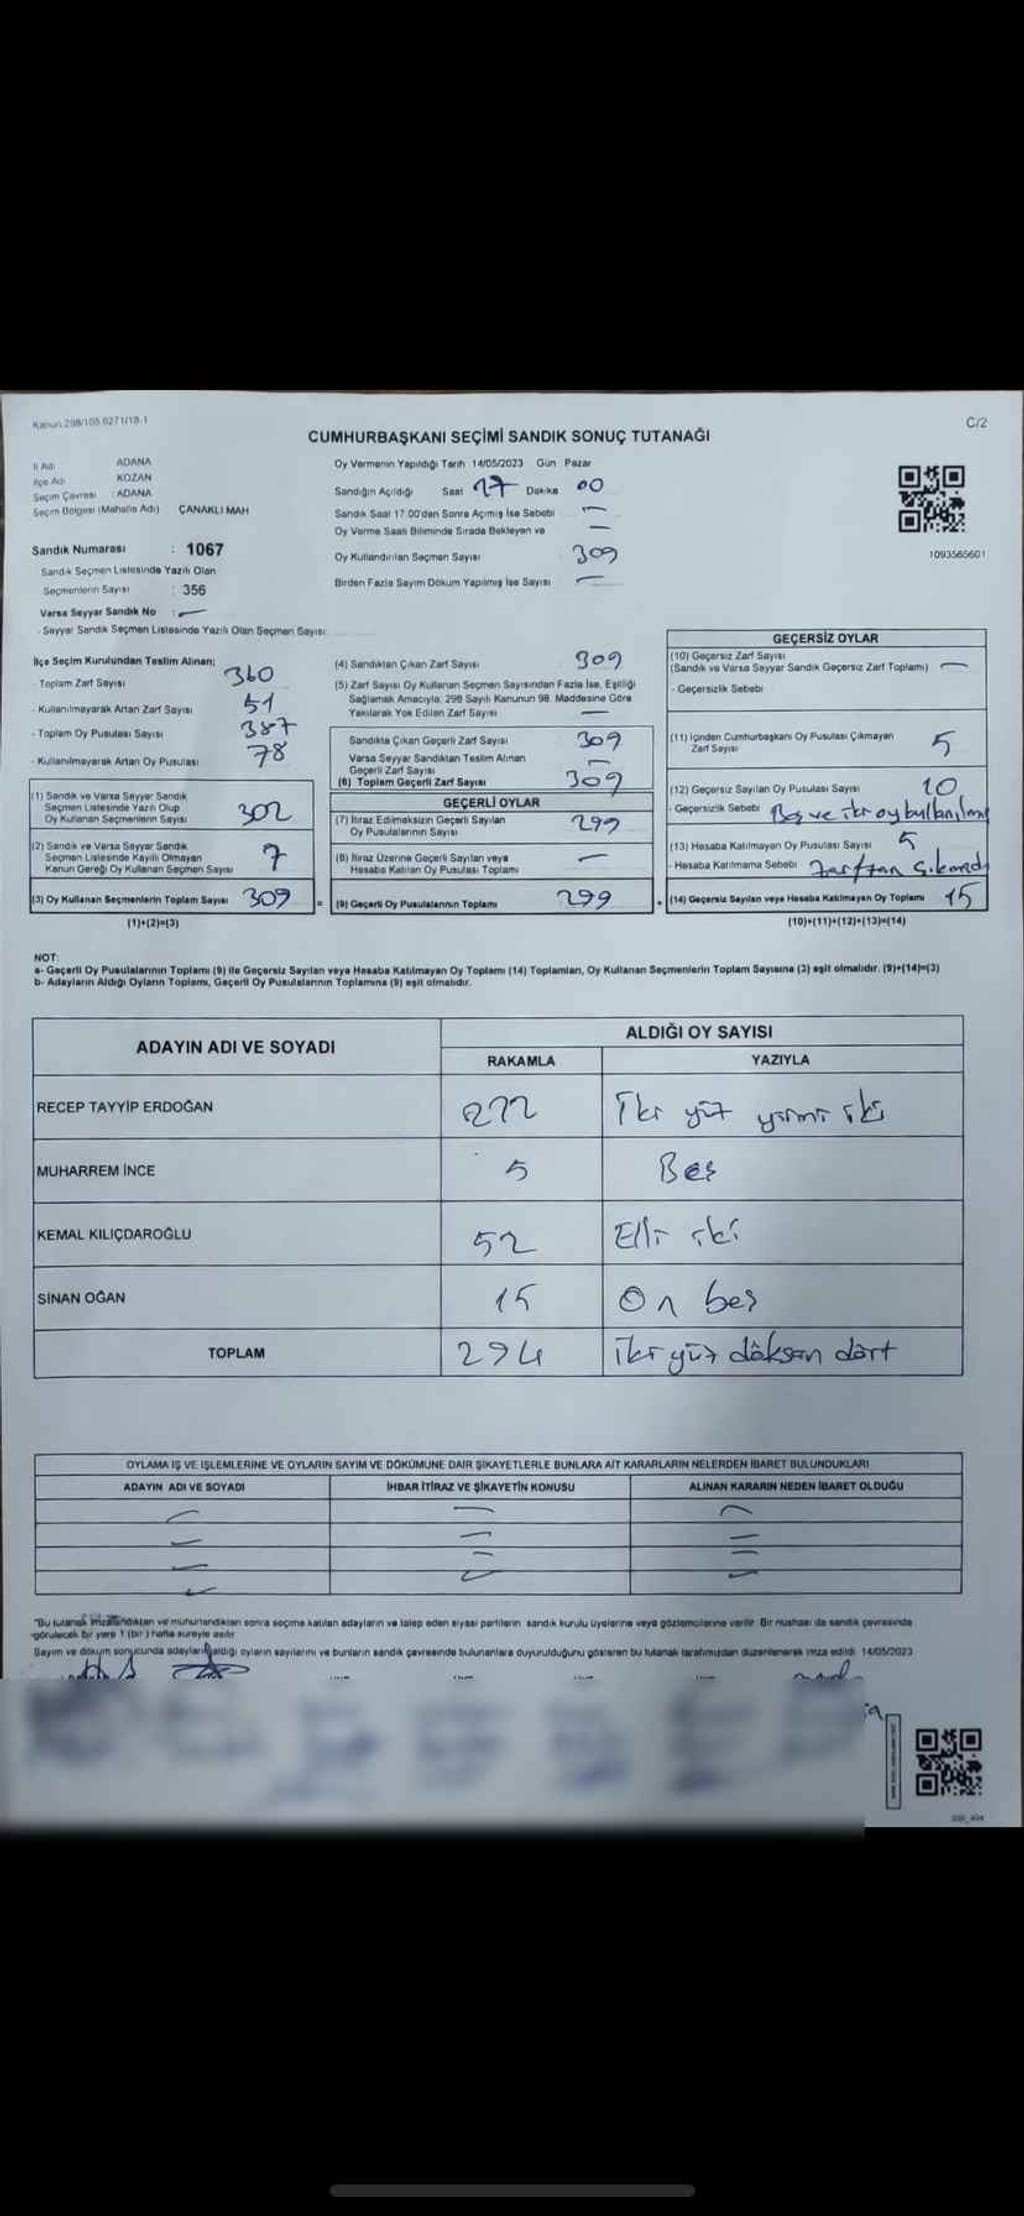 Kanun 298/105 6271/18-1
C/2
CUMHURBAŞKANI SEÇİMİ SANDIK SONUÇ TUTANAĞI
İl Adı ADANA
İlçe Adı KOZAN
Seçim Çevresi : ADANA
Seçim Bölgesi (Mahalle Adı) ÇANAKLI MAH
Oy Vermenin Yapıldığı Tarih 14/05/2023 Gün Pazar
Sandığın Açıldığı Saat 17 Dakika 00
Sandık Saat 17:00'den Sonra Açılmış İse Sebebi —
Oy Verme Saati Bitiminde Sırada Bekleyen ve —
Oy Kullandırılan Seçmen Sayısı 309
Birden Fazla Sayım Döküm Yapılmış İse Sayısı —
1093565601
Sandık Numarası : 1067
Sandık Seçmen Listesinde Yazılı Olan
Seçmenlerin Sayısı : 356
Varsa Seyyar Sandık No : —
- Seyyar Sandık Seçmen Listesinde Yazılı Olan Seçmen Sayısı
İlçe Seçim Kurulundan Teslim Alınan;
- Toplam Zarf Sayısı 360
- Kullanılmayarak Artan Zarf Sayısı 51
- Toplam Oy Pusulası Sayısı 387
- Kullanılmayarak Artan Oy Pusulası 78
(1) Sandık ve Varsa Seyyar Sandık
Seçmen Listesinde Yazılı Olup
Oy Kullanan Seçmenlerin Sayısı 302
(2) Sandık ve Varsa Seyyar Sandık
Seçmen Listesinde Kayıtlı Olmayan
Kanun Gereği Oy Kullanan Seçmen Sayısı 7
(3) Oy Kullanan Seçmenlerin Toplam Sayısı 309
(1)+(2)=(3)
(4) Sandıktan Çıkan Zarf Sayısı 309
(5) Zarf Sayısı Oy Kullanan Seçmen Sayısından Fazla İse, Eşitliği
Sağlamak Amacıyla, 298 Sayılı Kanunun 98. Maddesine Göre
Yakılarak Yok Edilen Zarf Sayısı —
Sandıkta Çıkan Geçerli Zarf Sayısı 309
Varsa Seyyar Sandıktan Teslim Alınan
Geçerli Zarf Sayısı —
(6) Toplam Geçerli Zarf Sayısı 309
GEÇERLİ OYLAR
(7) İtiraz Edilmeksizin Geçerli Sayılan
Oy Pusulalarının Sayısı 299
(8) İtiraz Üzerine Geçerli Sayılan veya
Hesaba Katılan Oy Pusulası Toplamı —
= (9) Geçerli Oy Pusulalarının Toplamı 299
GEÇERSİZ OYLAR
(10) Geçersiz Zarf Sayısı
(Sandık ve Varsa Seyyar Sandık Geçersiz Zarf Toplamı) —
- Geçersizlik Sebebi
(11) İçinden Cumhurbaşkanı Oy Pusulası Çıkmayan
Zarf Sayısı 5
(12) Geçersiz Sayılan Oy Pusulası Sayısı 10
- Geçersizlik Sebebi Boş ve iki oy
(13) Hesaba Katılmayan Oy Pusulası Sayısı 5
- Hesaba Katılmama Sebebi Zarftan
+ (14) Geçersiz Sayılan veya Hesaba Katılmayan Oy Toplamı 15
(10)+(11)+(12)+(13)=(14)
NOT:
a- Geçerli Oy Pusulalarının Toplamı (9) ile Geçersiz Sayılan veya Hesaba Katılmayan Oy Toplamı (14) Toplamları, Oy Kullanan Seçmenlerin Toplam Sayısına (3) eşit olmalıdır. (9)+(14)=(3)
b- Adayların Aldığı Oyların Toplamı, Geçerli Oy Pusulalarının Toplamına (9) eşit olmalıdır.
ADAYIN ADI VE SOYADI
ALDIĞI OY SAYISI
RAKAMLA YAZIYLA
RECEP TAYYİP ERDOĞAN 222 İki yüz yirmi iki
MUHARREM İNCE 5 Beş
KEMAL KILIÇDAROĞLU 52 Elli iki
SİNAN OĞAN 15 On beş
TOPLAM 294 iki yüz doksan dört
OYLAMA İŞ VE İŞLEMLERİNE VE OYLARIN SAYIM VE DÖKÜMÜNE DAİR ŞİKAYETLERLE BUNLARA AİT KARARLARIN NELERDEN İBARET BULUNDUKLARI
ADAYIN ADI VE SOYADI İHBAR İTİRAZ VE ŞİKAYETİN KONUSU ALINAN KARARIN NEDEN İBARET OLDUĞU
"Bu tutanak imzalandıktan ve mühürlendikten sonra seçime katılan adayların ve talep eden siyasi partilerin sandık kurulu üyelerine veya gözlemcilerine verilir. Bir nüshası da sandık çevresinde
görülecek bir yere 1 (bir) hafta süreyle asılır
Sayım ve döküm sonucunda adayların aldığı oyların sayılarını ve bunların sandık çevresinde bulunanlara duyurulduğunu gösteren bu tutanak tarafımızdan düzenlenerek imza edildi. 14/05/2023